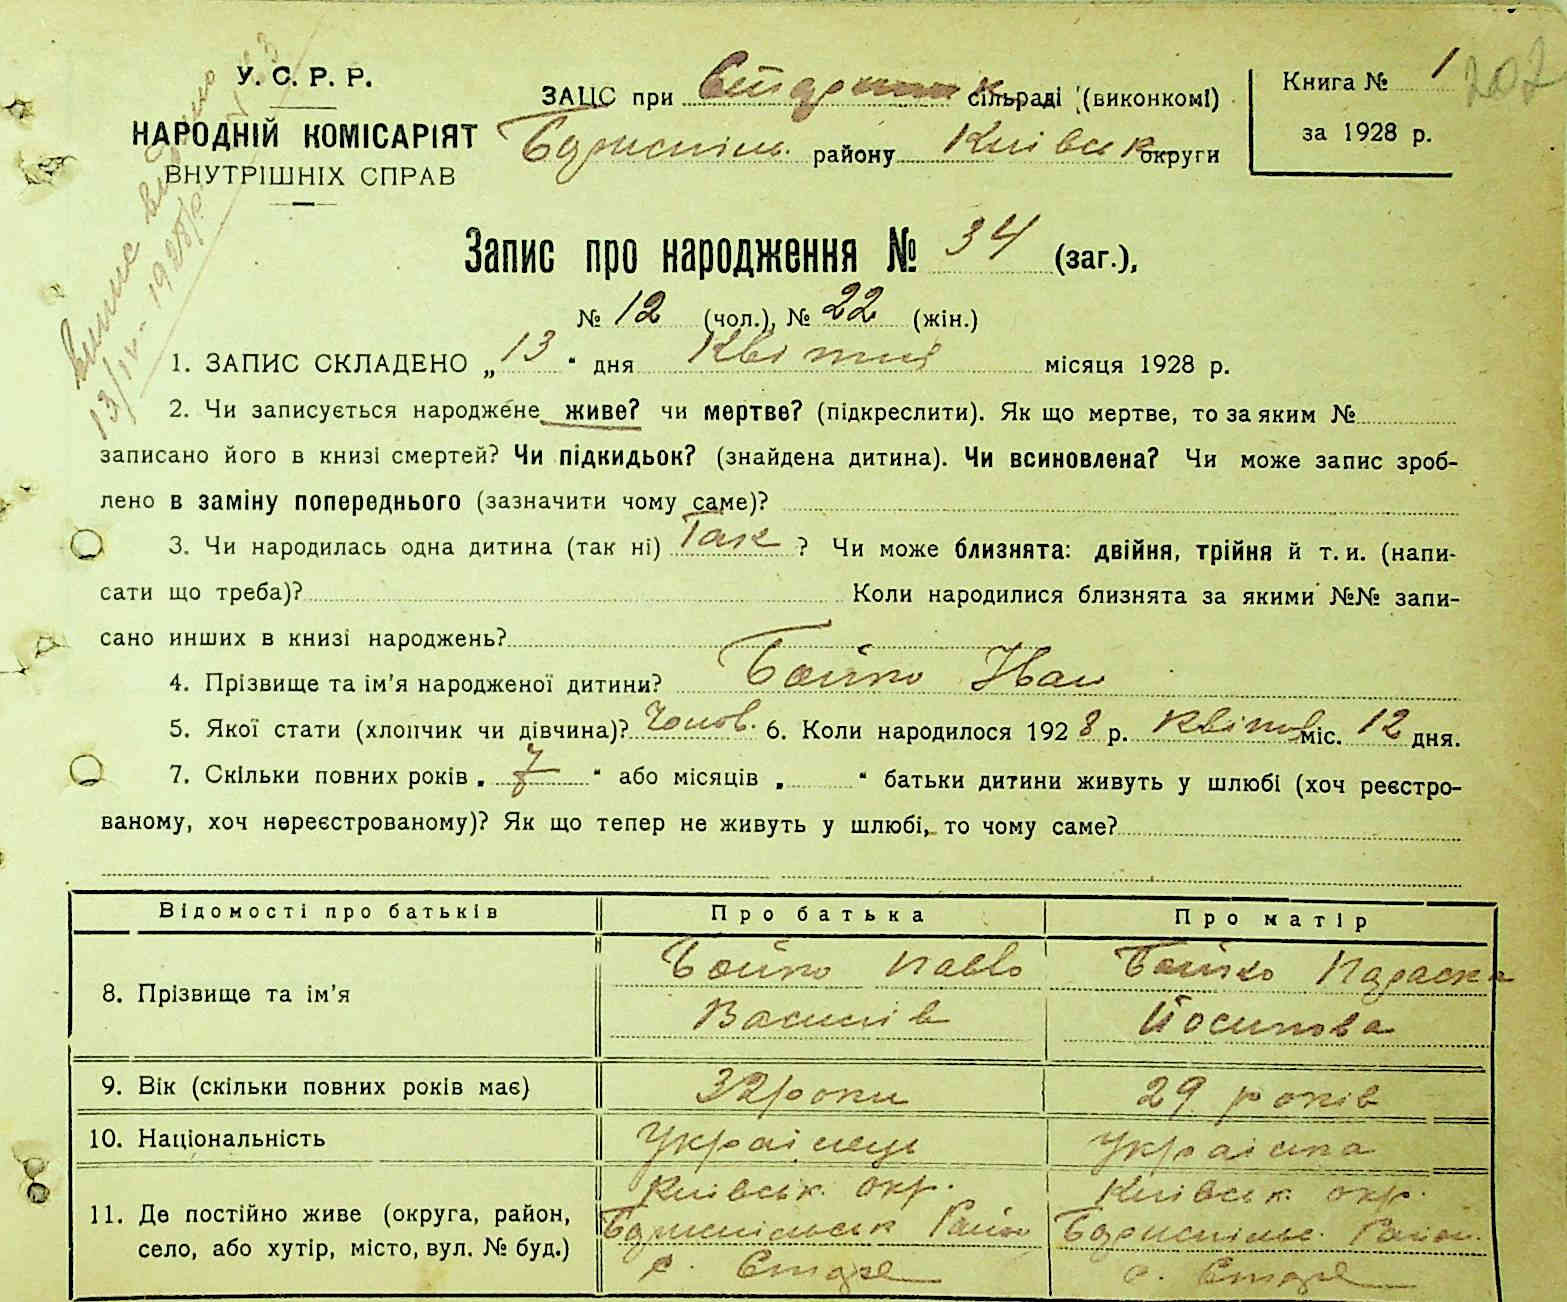 202
У. С. Р. Р.
НАРОДНІЙ КОМІСАРІЯТ
ВНУТРІШНІХ СПРАВ
ЗАЦС при сільраді (виконкомі)
Бориспіль. району Київськ округи
Книга № 1
за 1928 р.
Запис про народження № 34 (заг.),
№ 12 (чол.), № 22 (жін.)
1. ЗАПИС СКЛАДЕНО „13“ дня Квітня місяця 1928 р.
2. Чи записується народжене живе? чи мертве? (підкреслити). Як що мертве, то за яким №
записано його в книзі смертей? Чи підкидьок? (знайдена дитина). Чи всиновлена? Чи може запис зроб-
лено в заміну попереднього (зазначити чому саме)?
3. Чи народилась одна дитина (так ні) Так ? Чи може близнята: двійня, трійня й т. и. (напи-
сати що треба)? Коли народилися близнята за якими №№ запи-
сано инших в книзі народжень?
4. Прізвище та ім'я народженої дитини? Бойко Іван
5. Якої стати (хлопчик чи дівчина)? Чолов. 6. Коли народилося 1928 р. Квітня міс. 12 дня.
7. Скільки повних років „ 7 “ або місяців „ “ батьки дитини живуть у шлюбі (хоч реєстро-
ваному, хоч нереєстрованому)? Як що тепер не живуть у шлюбі, то чому саме?
Відомості про батьків Про батька Про матір
8. Прізвище та ім'я Бойко Павло Василів Бойко Параска Йосипова
9. Вік (скільки повних років має) 32 роки 29 років
10. Національність Українець Українка
11. Де постійно живе (округа, район, село, або хутір, місто, вул. № буд.) Київськ. окр. Бориспільськ Район с. Старе Київськ. окр. Бориспільс. Район. с. Старе
Випис видано